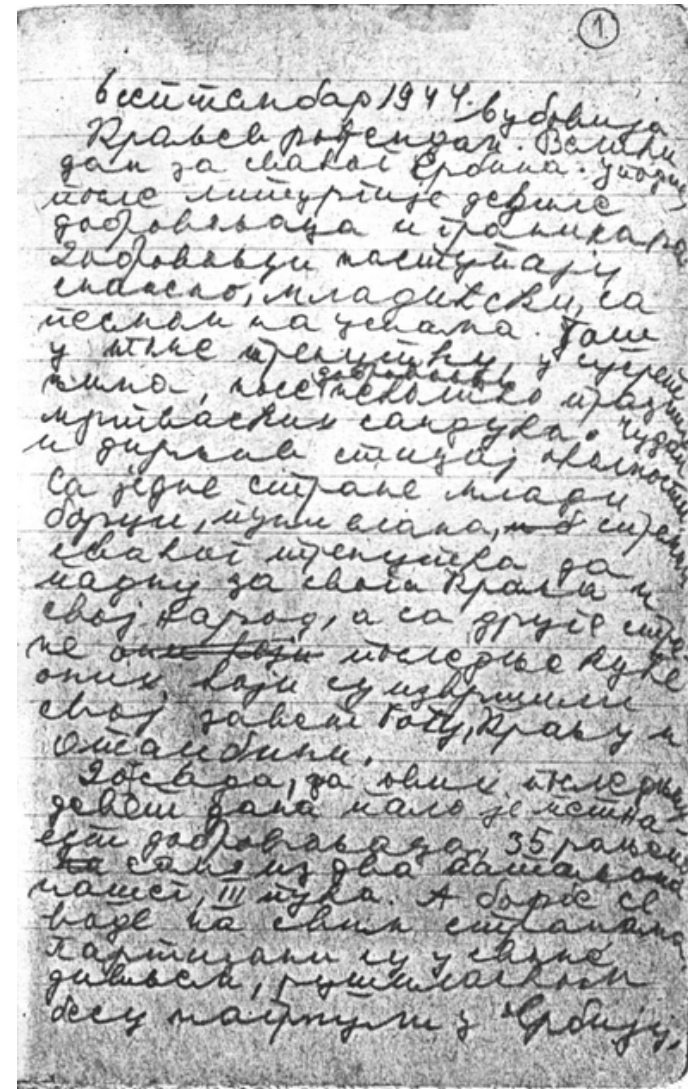 1.
6 септембар 1944. Љубовија
Краљев рођендан. Велики
дан за сваког Србина. У подне
после литургије дефиле
добровољаца и граничара
Добровољци наступају
снажно, младићски, са
песмом на уснама. Баш
у томе тренутку, у сусрет
њима, носе добровољци неколико празних
мртвачких сандука. Чудан
и дирљив стицај околности
Са једне стране млади
борци, пуни елана, спремни
сваког тренутка да
падну за свога Краља и
свој народ, а са друге стра-
не они који последње куће
оних који су извршили
свој завет Богу, Краљу и
Отаџбини.
До сада, за ових последњих
девет дана пало је петна-
ест добровољаца, 35 рањено
само из два батаљона
нашег, III пука. А борбе се
воде на свим странама
Партизани су у своме
дивљем, рушилачком
бесу насрнули у Србију,